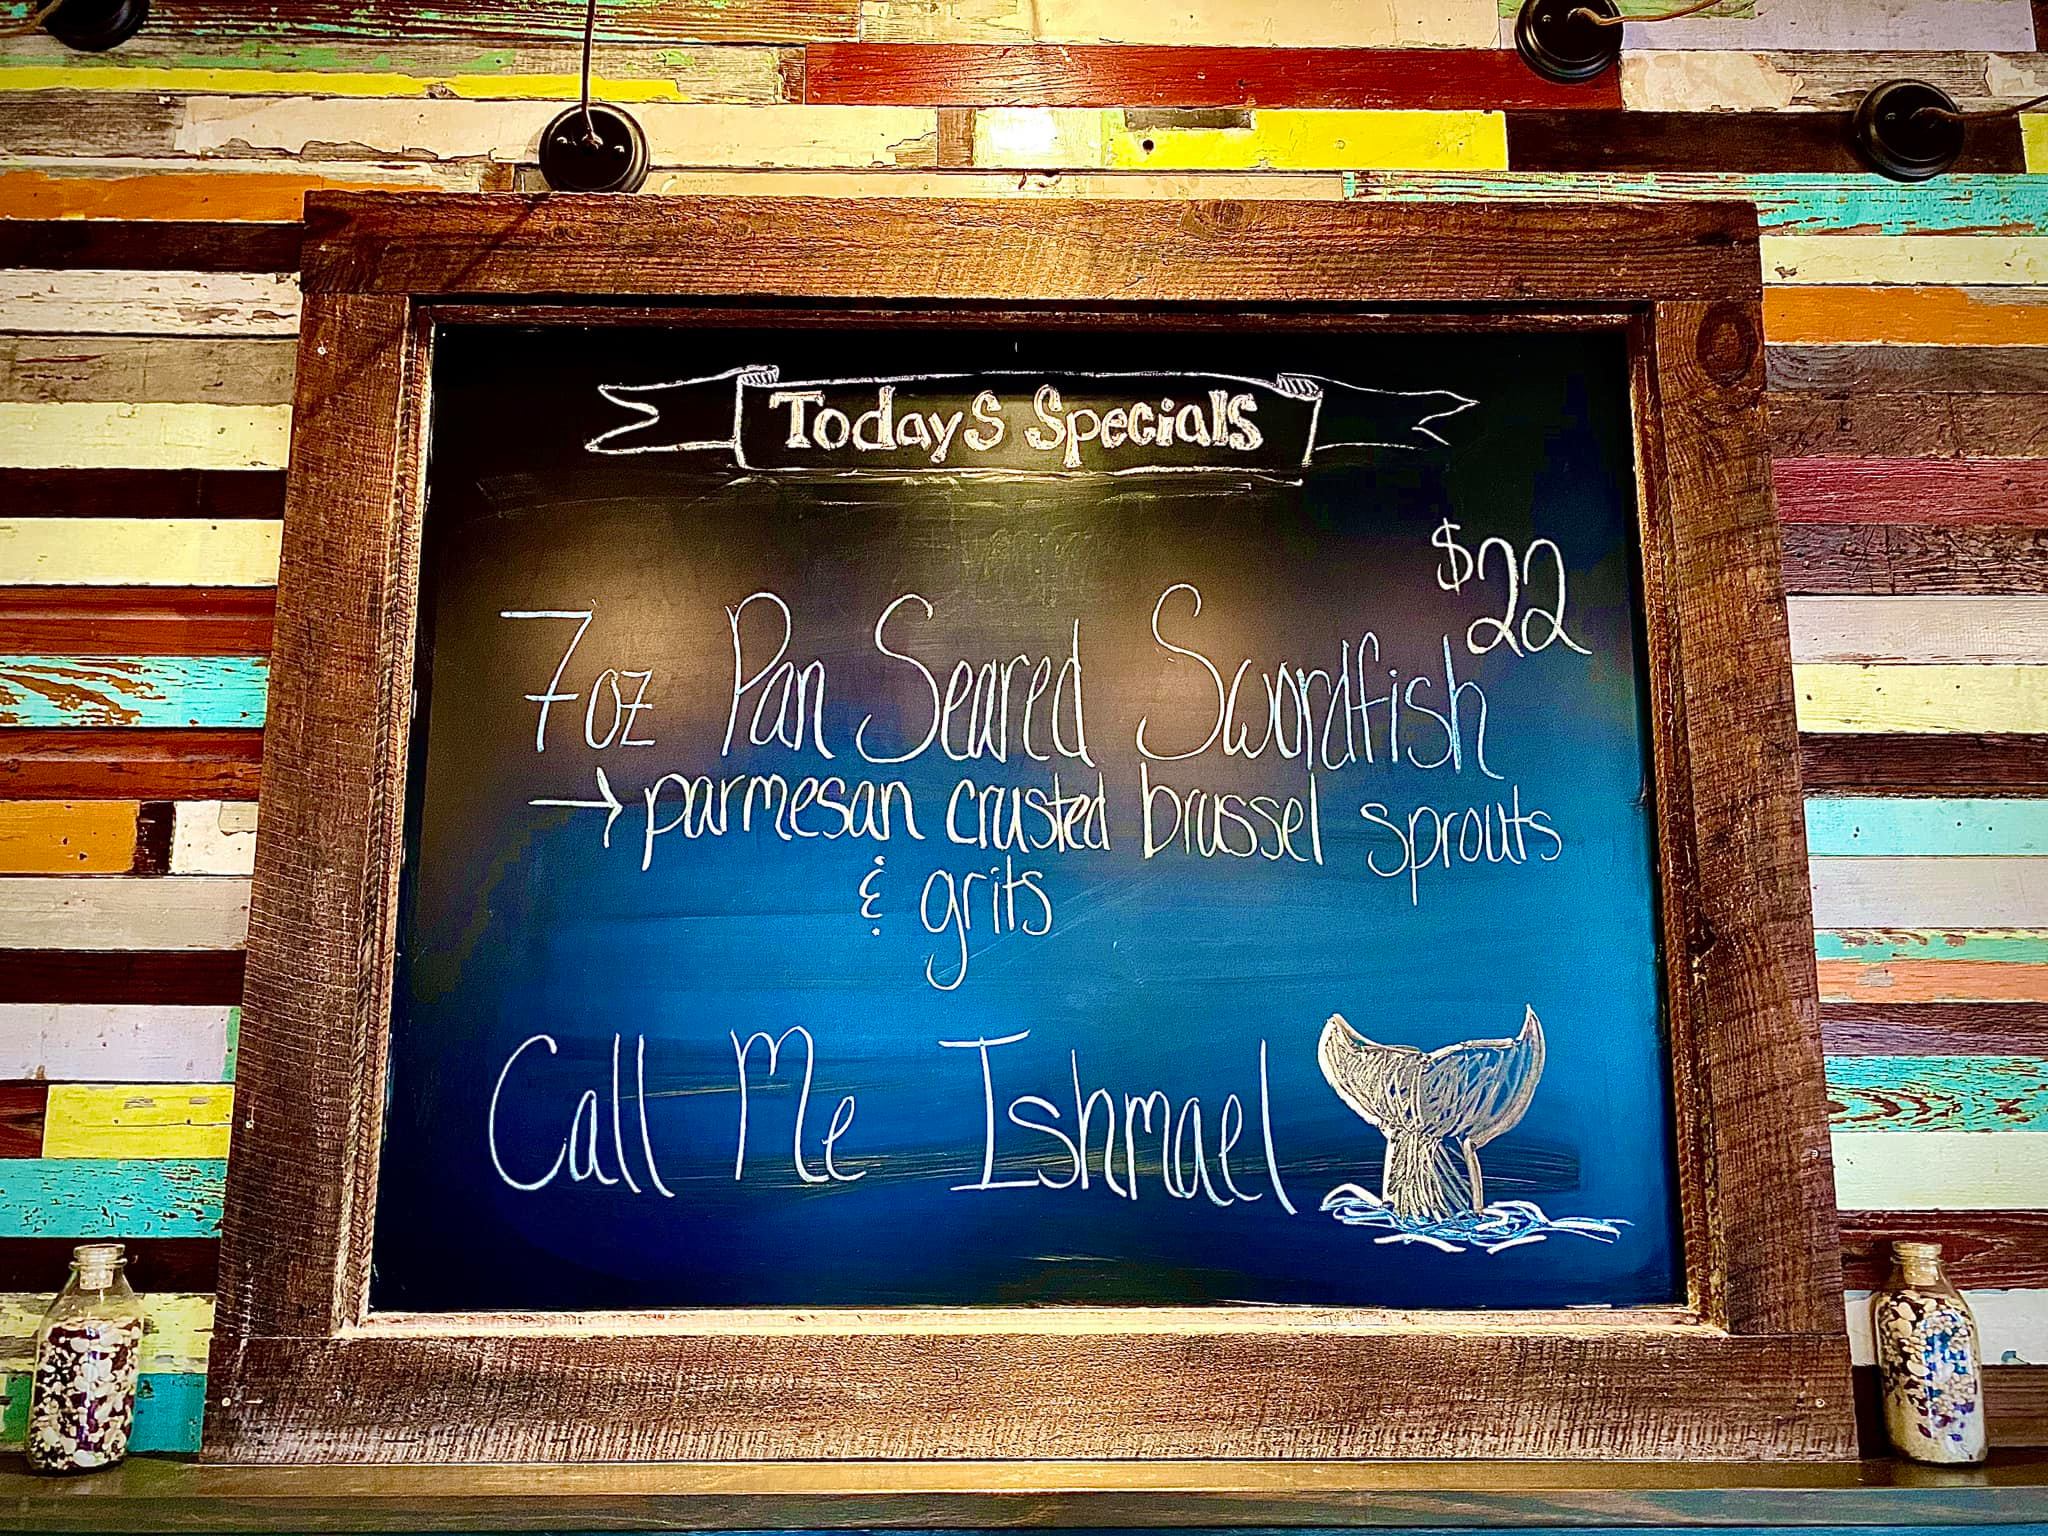 Today's Specials
$22
7oz Pan Seared Swordfish
→ parmesan crusted brussel sprouts
& grits
Call Me Ishmael